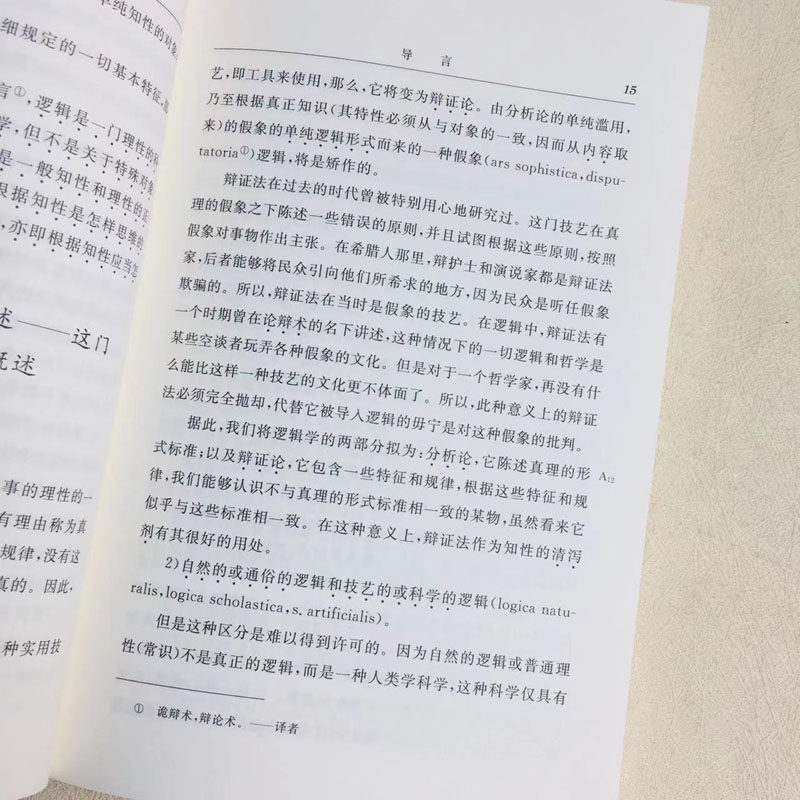 单纯知性的对象
细规定的一切基本特征,
言①,逻辑是一门理性的科
学,但不是关于特殊对象
是一般知性和理性的正
根据知性是怎样思维的
,亦即根据知性应当怎
述——这门
概述
事的理性的一
有理由称为真
规律,没有这
真的。因此,
种实用技
导 言
15
艺,即工具来使用,那么,它将变为辩证论。由分析论的单纯滥用,
乃至根据真正知识(其特性必须从与对象的一致,因而从内容取
来)的假象的单纯逻辑形式而来的一种假象(ars sophistica,dispu-
tatoria①)逻辑,将是矫作的。
辩证法在过去的时代曾被特别用心地研究过。这门技艺在真
理的假象之下陈述一些错误的原则,并且试图根据这些原则,按照
假象对事物作出主张。在希腊人那里,辩护士和演说家都是辩证法
家,后者能够将民众引向他们所希求的地方,因为民众是听任假象
欺骗的。所以,辩证法在当时是假象的技艺。在逻辑中,辩证法有
一个时期曾在论辩术的名下讲述,这种情况下的一切逻辑和哲学是
某些空谈者玩弄各种假象的文化。但是对于一个哲学家,再没有什
么能比这样一种技艺的文化更不体面了。所以,此种意义上的辩证
法必须完全抛却,代替它被导入逻辑的毋宁是对这种假象的批判。
据此,我们将逻辑学的两部分拟为:分析论,它陈述真理的形
式标准;以及辩证论,它包含一些特征和规律,根据这些特征和规
A12
律,我们能够认识不与真理的形式标准相一致的某物,虽然看来它
似乎与这些标准相一致。在这种意义上,辩证法作为知性的清泻
剂有其很好的用处。
2)自然的或通俗的逻辑和技艺的或科学的逻辑(logica natu-
ralis,logica scholastica,s. artificialis)。
但是这种区分是难以得到许可的。因为自然的逻辑或普通理
性(常识)不是真正的逻辑,而是一种人类学科学,这种科学仅具有
① 诡辩术,辩论术。——译者